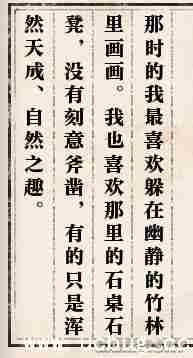 那时的我最喜欢躲在幽静的竹林
里画画。我也喜欢那里的石桌石
凳，没有刻意斧凿，有的只是浑
然天成、自然之趣。